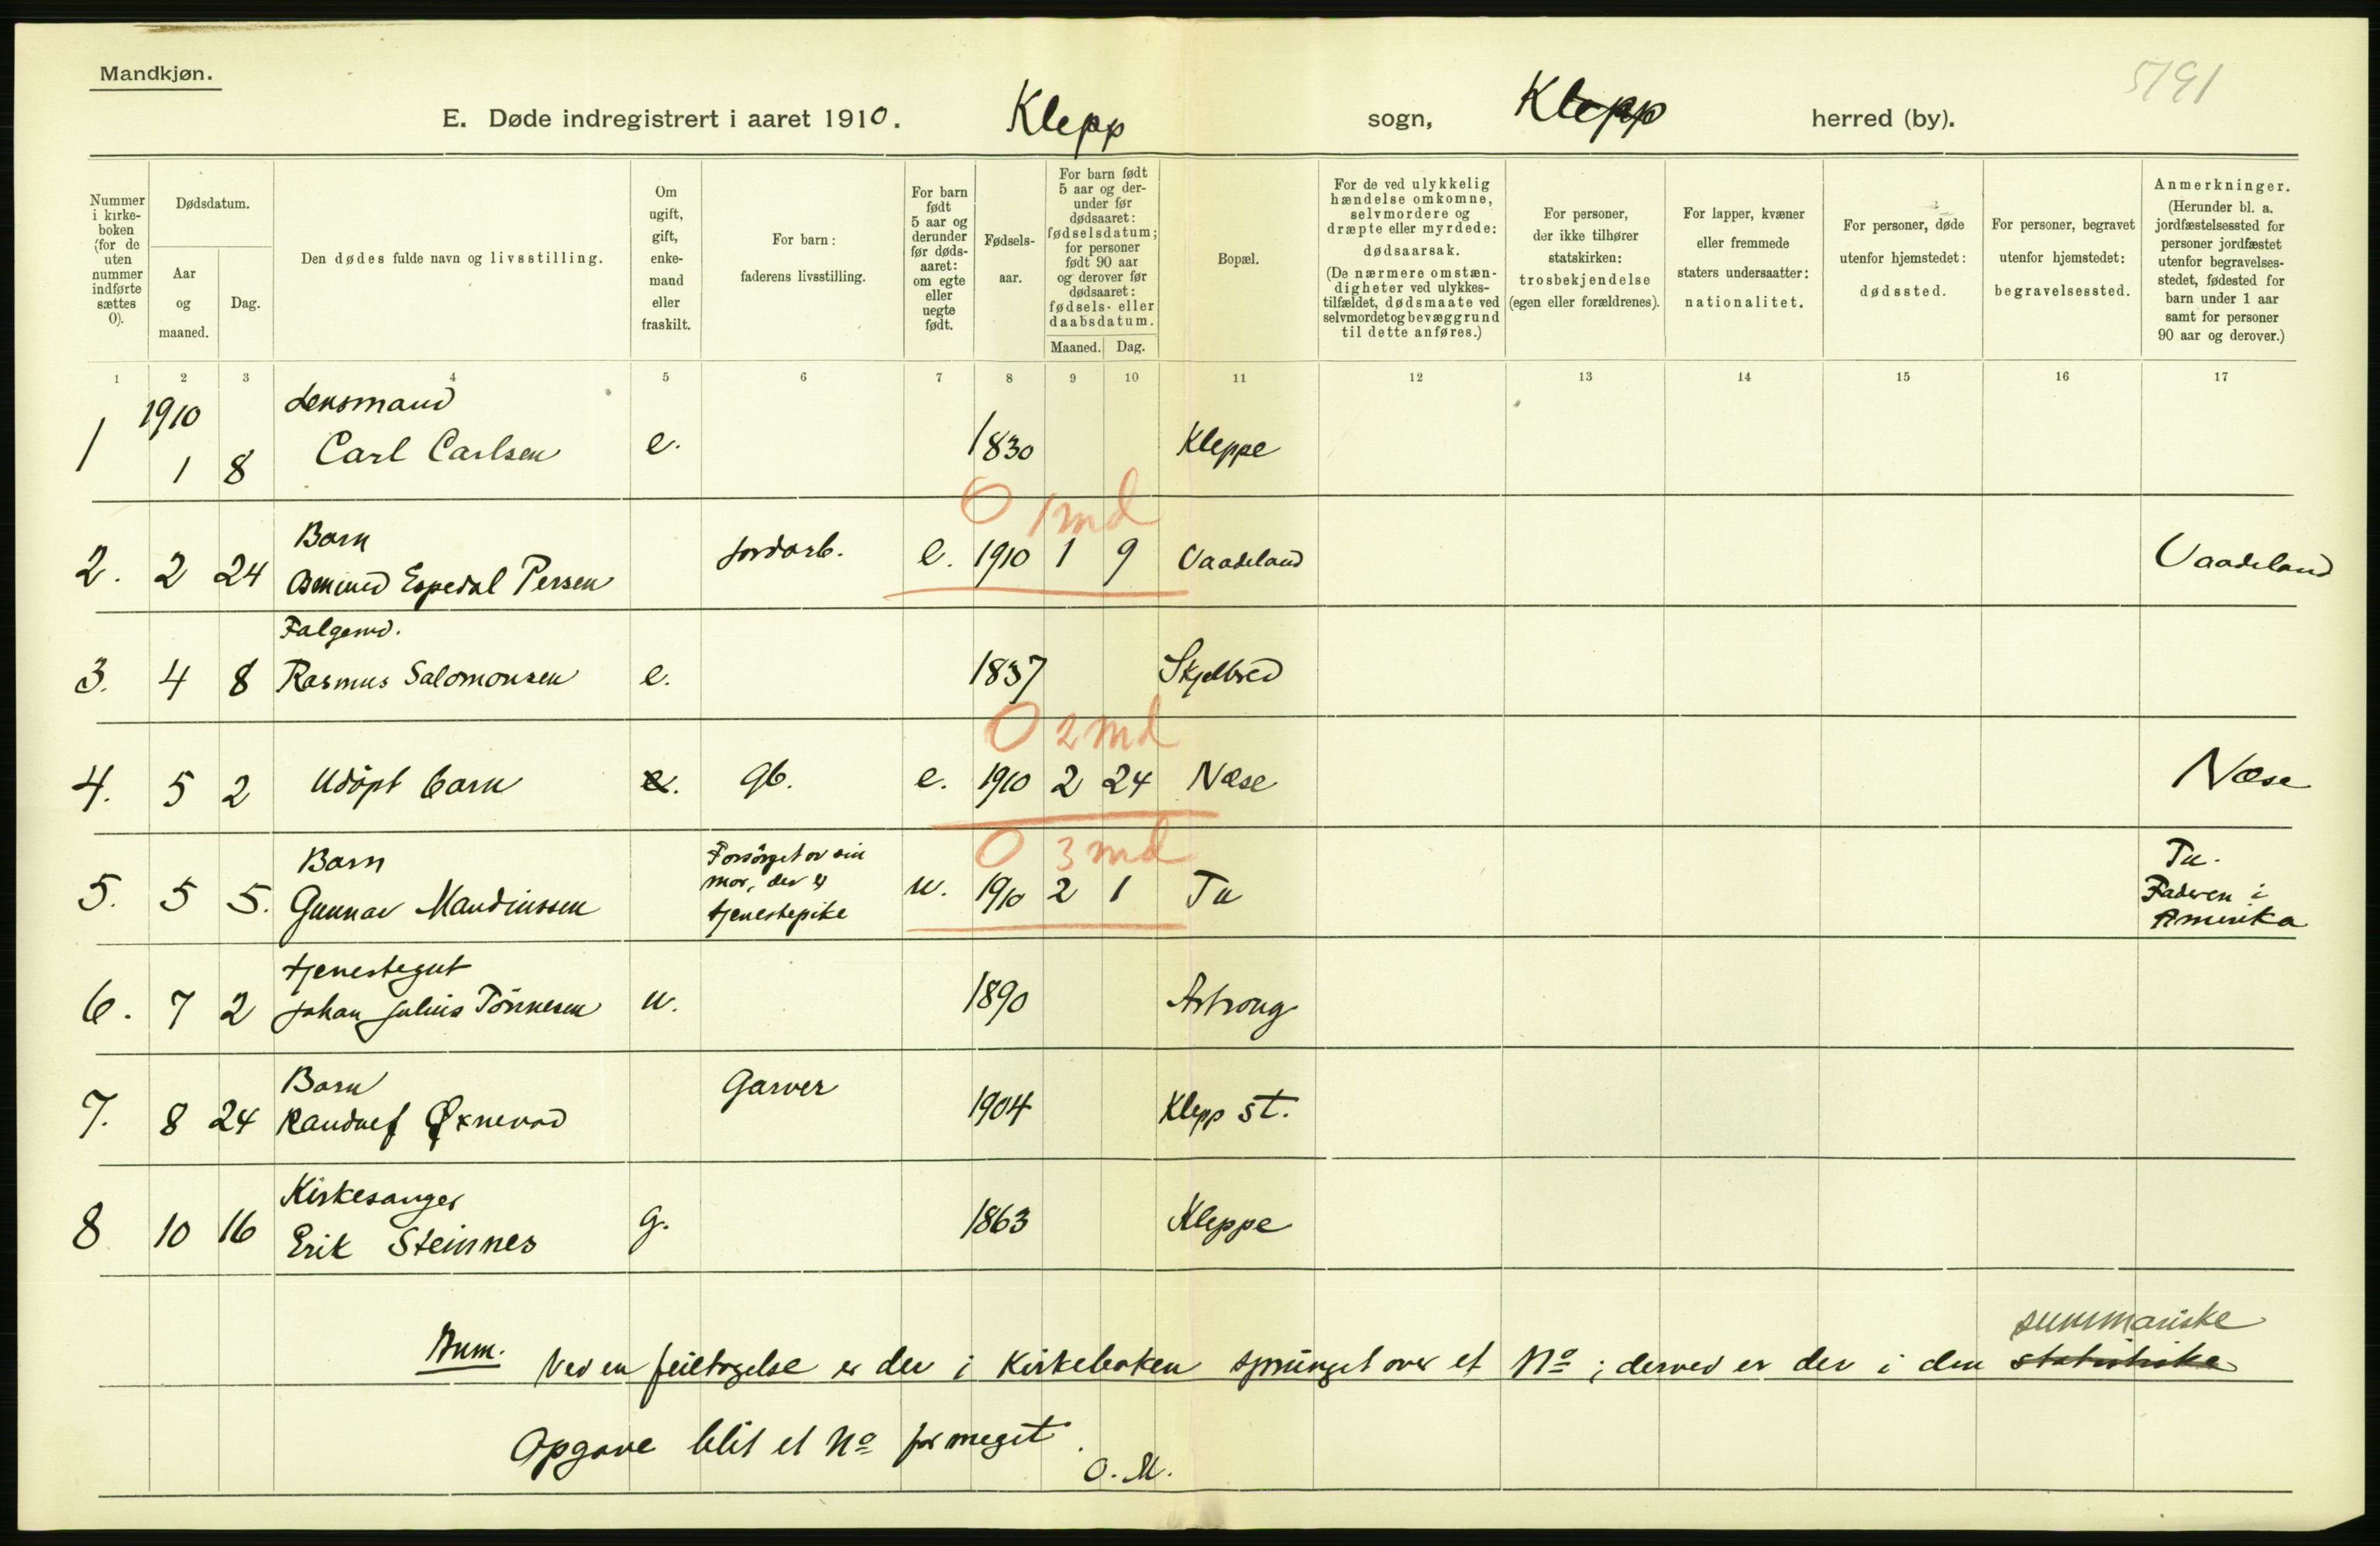 Mandkjøn.
5791
E. Døde indregistrert i aaret 1910. Klepp sogn, Klepp herred (by).
Nummer i kirke-boken (for de uten nummer indførte sættes 0).
Dødsdatum.
Aar og maaned.
Dag.
Den dødes fulde navn og livsstilling.
Om ugift, gift, enke-mand eller fraskilt.
For barn: faderens livsstilling.
For barn født 5 aar og derunder før døds-aaret: om egte eller uegte født.
Fødsels-aar.
For barn født 5 aar og der-under før dødsaaret: fødselsdatum; for personer født 90 aar og derover før dødsaaret: fødsels- eller daabsdatum.
Maaned. Dag.
Bopæl.
For de ved ulykkelig hændelse omkomne, selvmordere og dræpte eller myrdede: dødsaarsak. (De nærmere omstæn-digheter ved ulykkes-tilfældet, dødsmaate ved selvmordet og bevæggrund til dette anføres.)
For personer, der ikke tilhører statskirken: trosbekjendelse (egen eller forældrenes).
For lapper, kvæner eller fremmede staters undersaatter: nationalitet.
For personer, døde utenfor hjemstedet: dødssted.
For personer, begravet utenfor hjemstedet: begravelsessted.
Anmerkninger. (Herunder bl. a. jordfæstelsessted for personer jordfæstet utenfor begravelses-stedet, fødested for barn under 1 aar samt for personer 90 aar og derover.)
1 2 3 4 5 6 7 8 9 10 11 12 13 14 15 16 17
1910 Lensmand
1 1 8 Carl Carlsen e. 1830 Kleppe
0 1 md
Barn
2. 2 24 Osmund Espedal Persen Jordarb. e. 1910 1 9 Vaadeland Vaadeland
Følgemd.
3. 4 8 Rasmus Salomonsen e. 1837 Skjelbred
0 2 md
4. 5 2 Udöpt barn e. gb. e. 1910 2 24 Næse Næse
0 3 md
Barn Forsörget av sin Tu.
5. 5 5. Gunnar Maudinssen mor, der er tjenestepike u. 1910 2 1 Tu Faderen i Amerika
tjenestegut
6. 7 2 Johan Julius Tönnesen u. 1890 Astroug
Barn Garver
7. 8 24 Randulf Øxnevad 1904 Klepp st.
Kirkesanger
8 10 16 Erik Steinnes g. 1863 Kleppe
summariske
Anm. Ved en feiltagelse er der i Kirkeboken sprunget over et No; derved er der i den statistiske
Opgave blit et No for meget.
O. M.